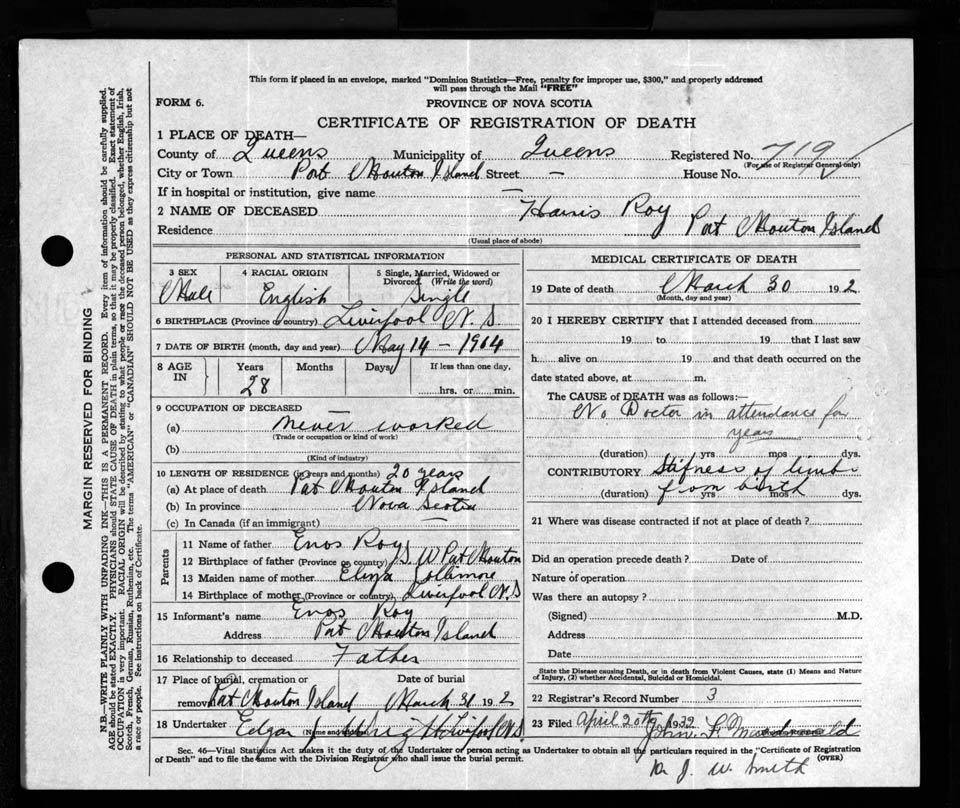 This form if placed in an envelope, marked "Dominion Statistics—Free, penalty for improper use, $300," and properly addressed
will pass through the Mail "FREE"
FORM 6.
PROVINCE OF NOVA SCOTIA
CERTIFICATE OF REGISTRATION OF DEATH
1 PLACE OF DEATH—
County of Queens Municipality of Queens Registered No. 719
(For use of Registrar General only)
City or Town Port Mouton Island Street — House No.
If in hospital or institution, give name —
2 NAME OF DECEASED Harris Roy
Residence Port Mouton Island
(Usual place of abode)
PERSONAL AND STATISTICAL INFORMATION
3 SEX 4 RACIAL ORIGIN 5 Single, Married, Widowed or
Divorced. (Write the word)
Male English Single
6 BIRTHPLACE (Province or country) Liverpool N.S.
7 DATE OF BIRTH (month, day and year) May 14 - 1904
8 AGE IN Years Months Days If less than one day,
28 hrs. or min.
9 OCCUPATION OF DECEASED
(a) never worked
(Trade or occupation or kind of work)
(b)
(Kind of industry)
10 LENGTH OF RESIDENCE (in years and months) 20 years
(a) At place of death Port Mouton Island
(b) In province Nova Scotia
(c) In Canada (if an immigrant)
Parents
11 Name of father Enos Roy
12 Birthplace of father (Province or country) S. W Port Mouton
13 Maiden name of mother
14 Birthplace of mother (Province or country) Liverpool N.S
15 Informant's name Enos Roy
Address Port Mouton Island
16 Relationship to deceased Father
17 Place of burial, cremation or removal Date of burial
Port Mouton Island March 31 192
18 Undertaker Edgar
(Name and address)
MEDICAL CERTIFICATE OF DEATH
19 Date of death March 30 192
(Month, day and year)
20 I HEREBY CERTIFY that I attended deceased from
19 to 19 that I last saw
h alive on 19 and that death occurred on
date stated above, at m.
The CAUSE of DEATH was as follows:
No Doctor in attendance for
years
(duration) yrs mos dys.
CONTRIBUTORY Stifness of limb
(duration) from birth yrs mos dys.
21 Where was disease contracted if not at place of death?
Did an operation precede death? Date of
Nature of operation
Was there an autopsy?
(Signed) M.D.
Address
Date
State the Disease causing Death, or in death from Violent Causes, state (1) Means and Nature
of Injury, (2) whether Accidental, Suicidal or Homicidal.
22 Registrar's Record Number 3
23 Filed April 20th 1932
John F.
Sec. 46—Vital Statistics Act makes it the duty of the Undertaker or person acting as Undertaker to obtain all the particulars required in the "Certificate of Registration
of Death" and to file the same with the Division Registrar who shall issue the burial permit.
(OVER)
J. W. Smith
MARGIN RESERVED FOR BINDING
N.B.—WRITE PLAINLY WITH UNFADING INK—THIS IS A PERMANENT RECORD. Every item of information should be carefully supplied.
AGE should be stated EXACTLY. PHYSICIANS should STATE CAUSE OF DEATH in plain terms, so that it may be properly classified. Exact statement of
OCCUPATION is very important. RACIAL ORIGIN will be described by stating to what people or race the deceased person belonged, whether English, Irish,
Scotch, French, German, Russian, Ruthenian, etc. The terms "AMERICAN" or "CANADIAN" SHOULD NOT BE USED as they express citizenship but not
a race or people. See instructions on back of Certificate.